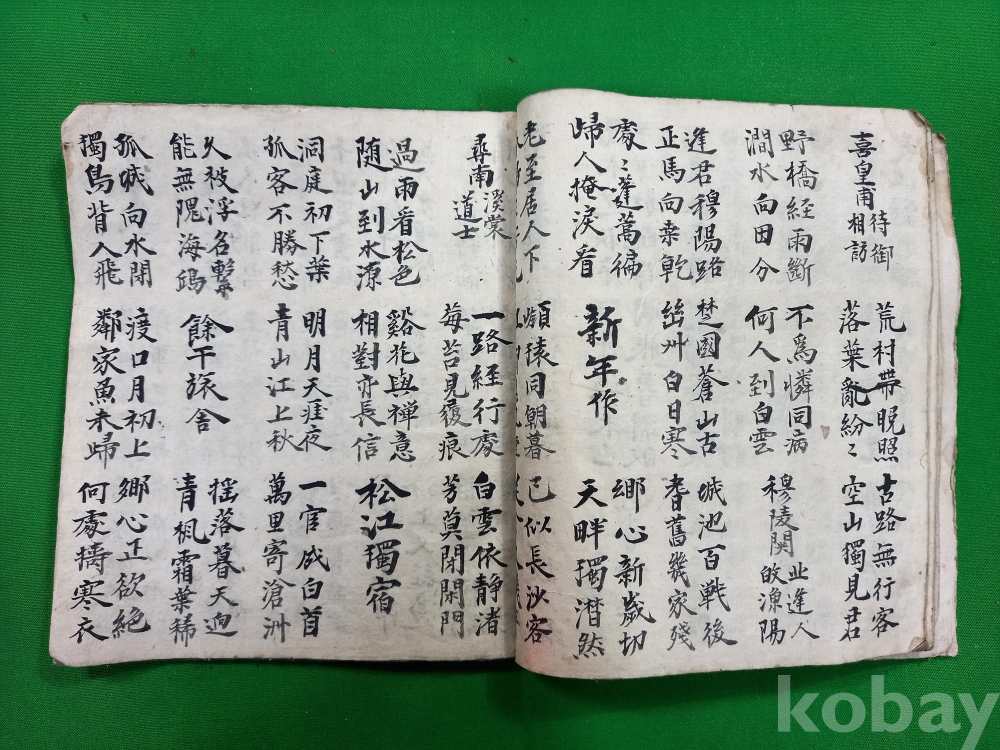 喜皇甫侍御相訪
荒村帶晚照
落葉亂紛〻
古路無行客
空山獨見君
野橋経雨斷
澗水向田分
不爲憐同病
何人到白雲
穆陵関北逢人故漁陽
逢君穆陽路
正馬向桑乾
楚國蒼山古
幽州白日寒
城池百戰後
耆舊幾家殘
處〻蓬蒿徧
歸人掩淚看
新年作
鄉心新歲切
天畔獨潸然
老至居人下
嶺猿同朝暮
已似長沙客
尋南溪裳道士
一路経行處
每苔見履痕
白雲依静渚
芳莫閉閑門
過雨看松色
随山到水源
谿花與禪意
相對亦長信
松江獨宿
洞庭初下葉
孤客不勝愁
明月天涯夜
青山江上秋
一官成白首
萬里寄滄洲
久被浮名繫
能無愧海鷗
餘干旅舍
揺落暮天迥
青楓霜葉稀
孤城向水閉
獨鳥背人飛
渡口月初上
鄰家魚未歸
鄉心正欲絶
何處擣寒衣
kobay